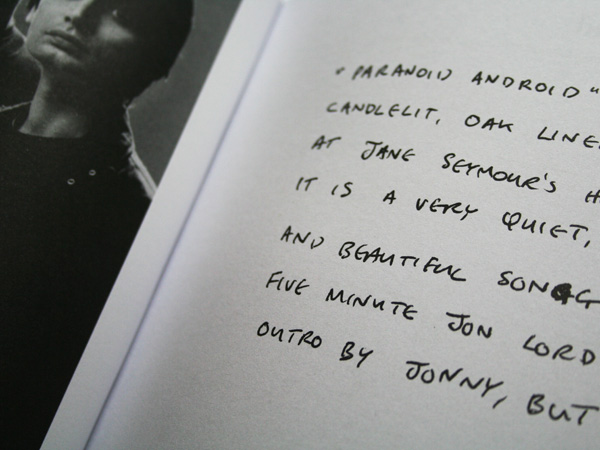 "PARANOID ANDROID"
CANDLELIT, OAK
AT JANE SEYMOUR'S
IT IS A VERY QUIET,
AND BEAUTIFUL SONG
FIVE MINUTE JON LORD
OUTRO BY JONNY, BUT